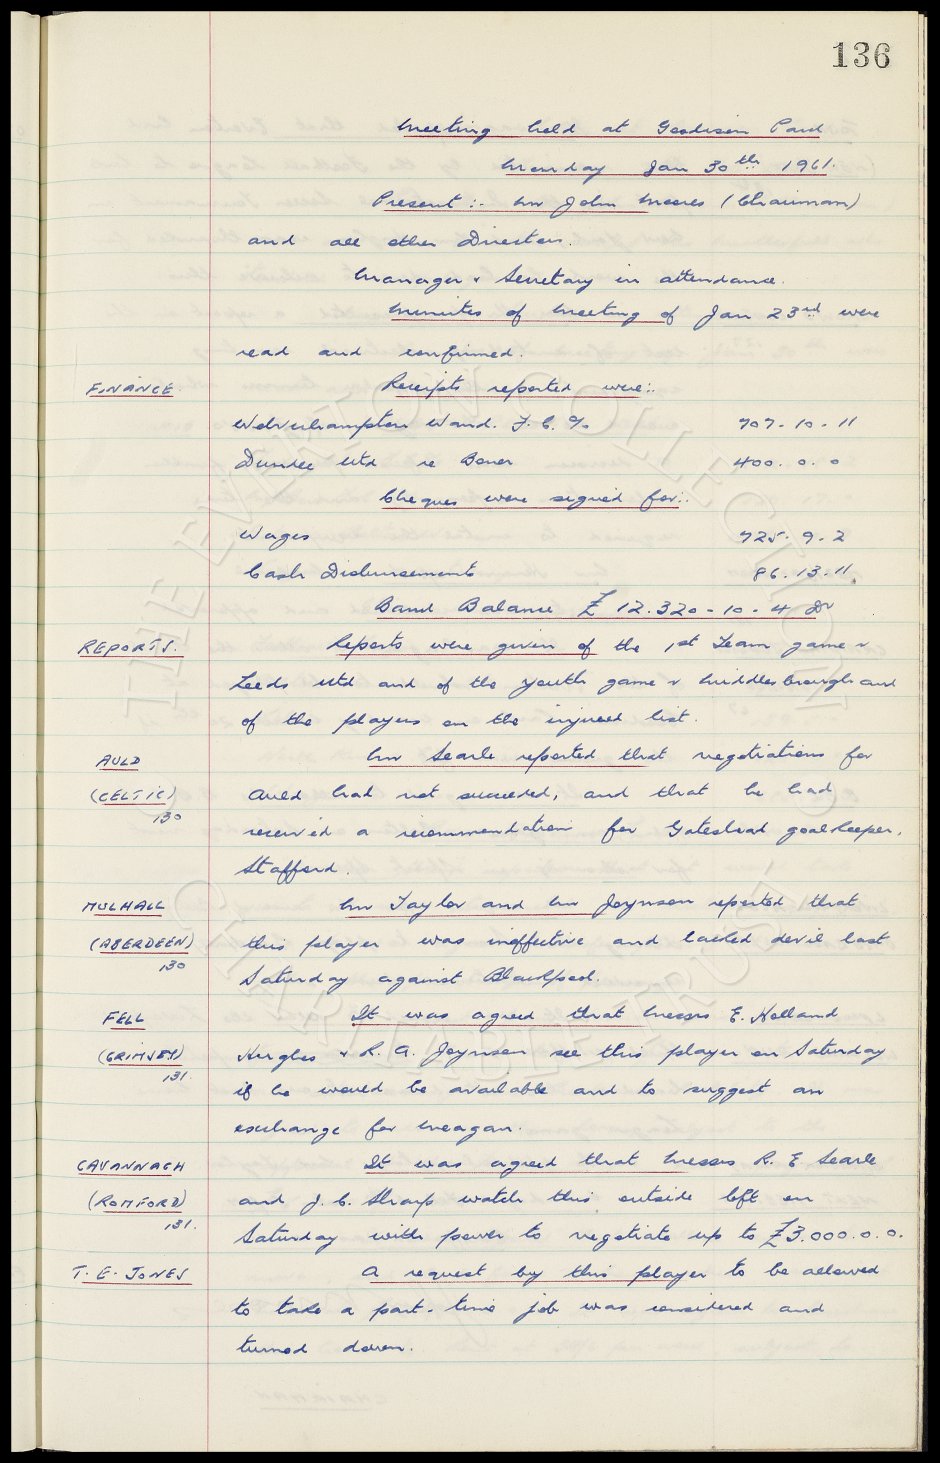 136
Meeting held at Goodison Park
Monday Jan 30th 1961.
Present :- Mr John Moores (Chairman)
and all other Directors.
Manager & Secretary in attendance.
Minutes of Meeting of Jan 23rd were
read and confirmed.
FINANCE Receipts reported were:-
Wolverhampton Wand. F.C. % 707-10-11
Dundee Utd re Boner 400.0.0
Cheques were signed for:-
Wages 725.9.2
Cash Disbursements 86.13.11.
Bank Balance £12.320-10-4 Dr
REPORTS. Reports were given of the 1st Team game v
Leeds Utd and of the youth game v Middlesbrough and
of the players on the injured list.
AULD Mr Searle reported that negotiations for
(CELTIC) Auld had not succeeded, and that he had
130 received a recommendation for Gateshead goalkeeper,
Stafford.
MULHALL Mr Taylor and Mr Joynson reported that
(ABERDEEN) this player was ineffective and lacked devil last
130 Saturday against Blackpool.
FELL It was agreed that Messrs E. Holland
(GRIMSBY) Hughes & R. A. Joynson see this player on Saturday
131. if he would be available and to suggest an
exchange for Meagan.
CAVANNAGH It was agreed that Messrs R. E Searle
(ROMFORD) and J. C. Sharp watch this outside left on
131. Saturday with power to negotiate up to £3.000.0.0.
T. E. JONES A request by this player to be allowed
to take a part-time job was considered and
turned down.
THE EVERTON COLLECTION
CHARITABLE TRUST